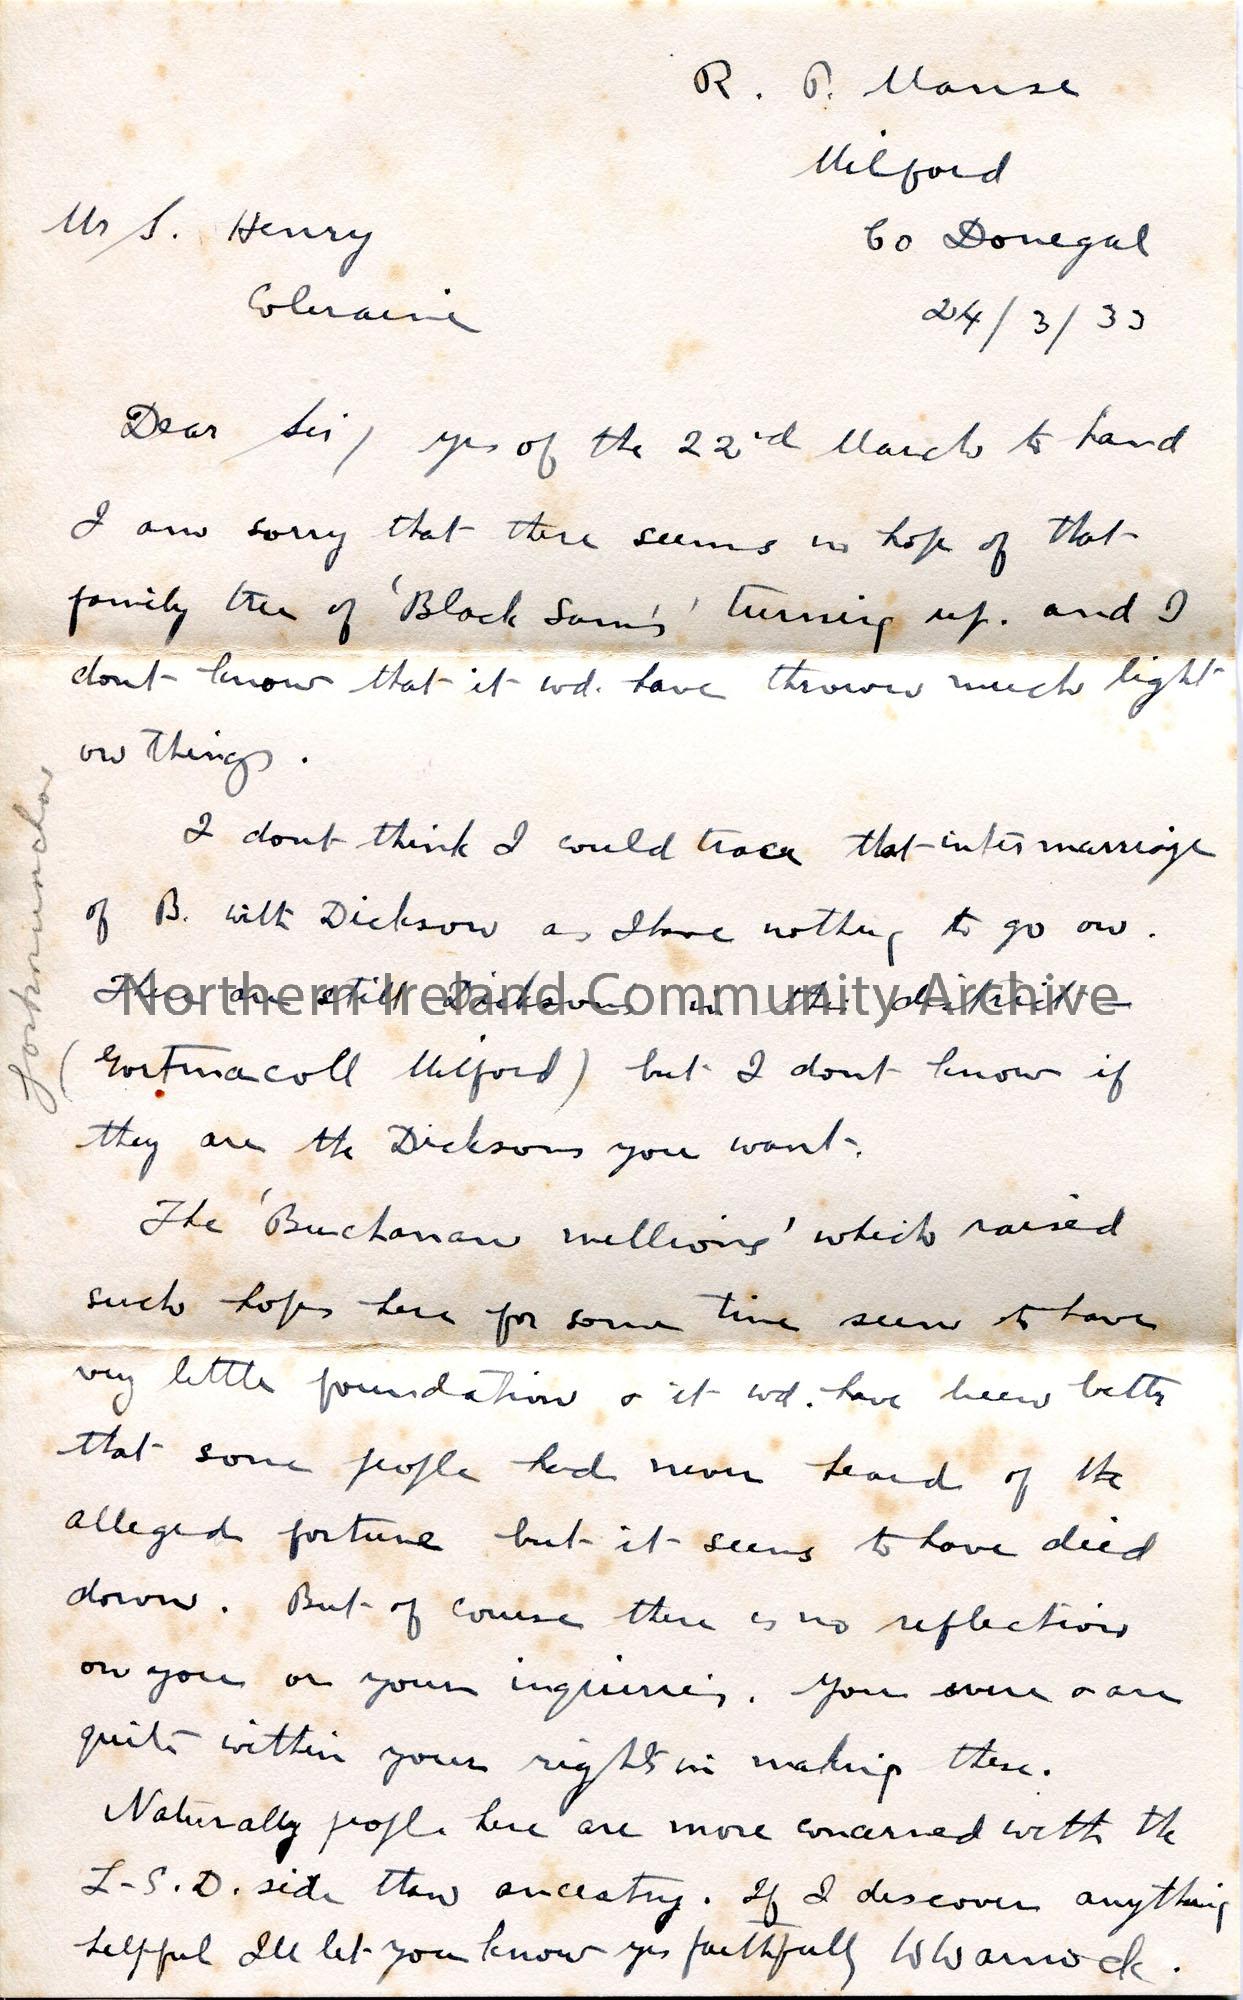 R. P. Manse
Milford
Co Donegal
24/3/33
Mr S. Henry
Coleraine
Dear Sir/ yrs of the 22nd March to hand
I am sorry that there seems no hope of that
family tree of 'Black Sam's' turning up. and I
dont know that it wd. have thrown much light
on things.
I dont think I could trace that intermarriage
of B. with Dickson as I have nothing to go on.
There are still Dicksons in the district
(Gortmacoll Milford) but I dont know if
they are the Dicksons you want.
The 'Buchanan millions' which raised
such hopes here for some time seem to have
very little foundation & it wd. have been better
that some people had never heard of the
alleged fortune but it seems to have died
down. But of course there is no reflection
on you or your inquiries. You were & are
quite within your rights in making these.
Naturally people here are more concerned with the
L-S.D. side than ancestry. If I discover anything
helpful Ill let you know yrs faithfully W Warnock.
Northern Ireland Community Archive